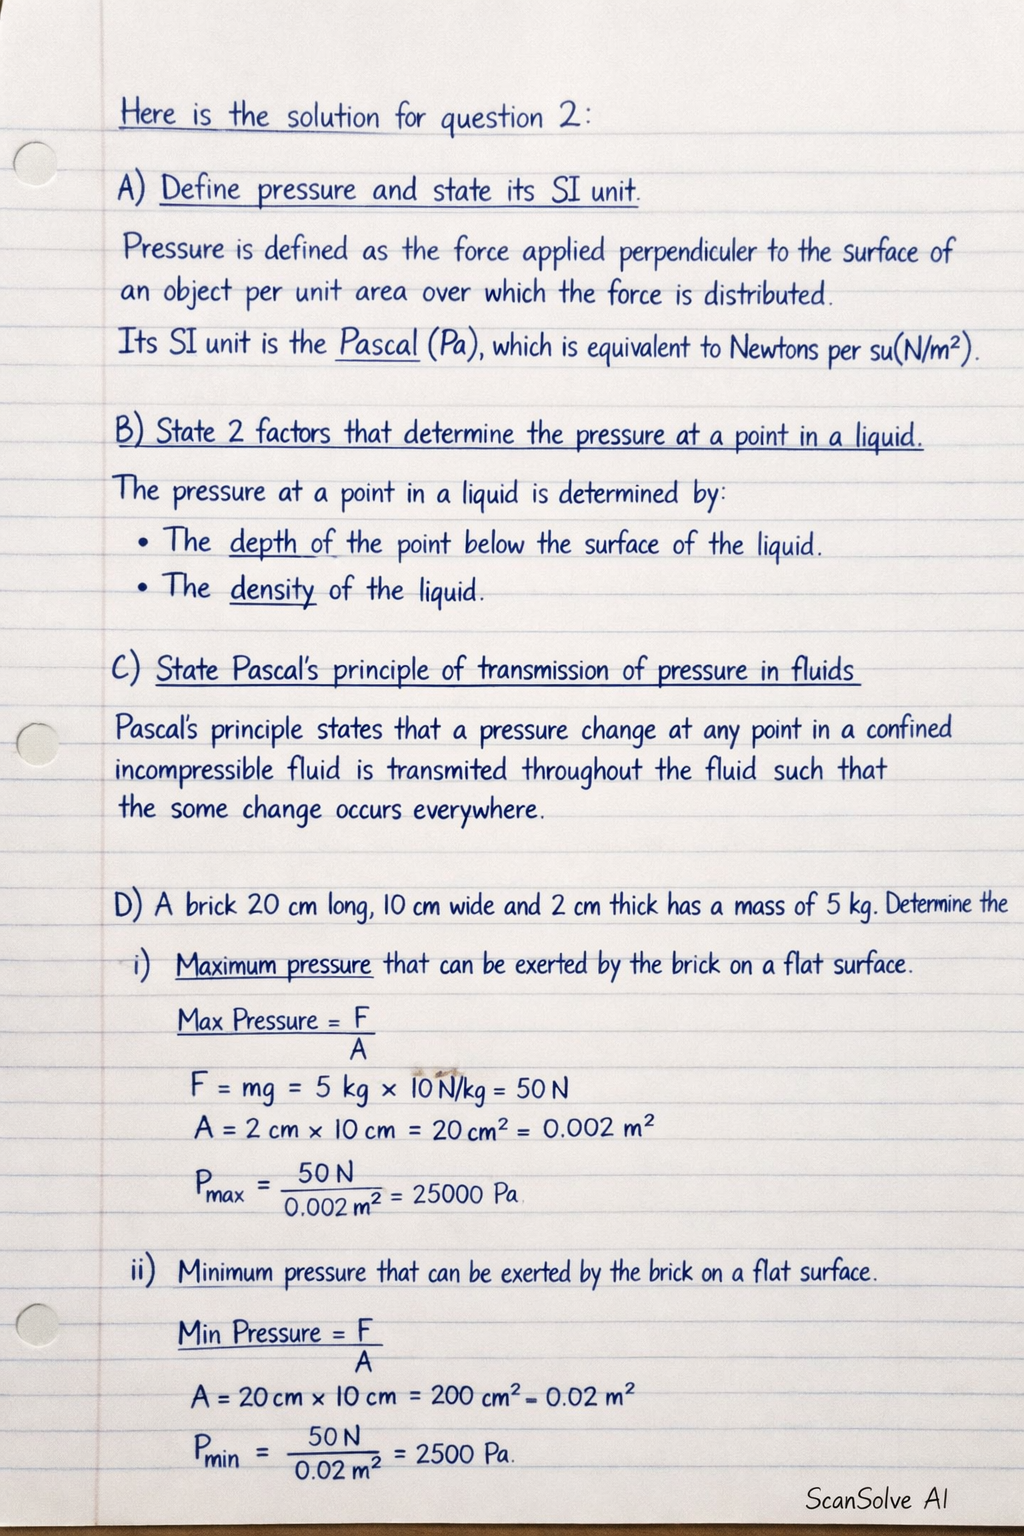 Here is the solution for question 2:
A) Define pressure and state its SI unit.
Pressure is defined as the force applied perpendiculer to the surface of
an object per unit area over which the force is distributed.
Its SI unit is the Pascal (Pa), which is equivalent to Newtons per su(N/m²).
B) State 2 factors that determine the pressure at a point in a liquid.
The pressure at a point in a liquid is determined by:
• The depth of the point below the surface of the liquid.
• The density of the liquid.
C) State Pascal's principle of transmission of pressure in fluids
Pascal's principle states that a pressure change at any point in a confined
incompressible fluid is transmited throughout the fluid such that
the some change occurs everywhere.
D) A brick 20 cm long, 10 cm wide and 2 cm thick has a mass of 5 kg. Determine the
i) Maximum pressure that can be exerted by the brick on a flat surface.
Max Pressure = F
A
F = mg = 5 kg × 10 N/kg = 50 N
A = 2 cm × 10 cm = 20 cm² = 0.002 m²
50 N
Pmax = = 25000 Pa
0.002 m²
ii) Minimum pressure that can be exerted by the brick on a flat surface.
Min Pressure = F
A
A = 20 cm × 10 cm = 200 cm² - 0.02 m²
50 N
Pmin = = 2500 Pa.
0.02 m²
ScanSolve AI